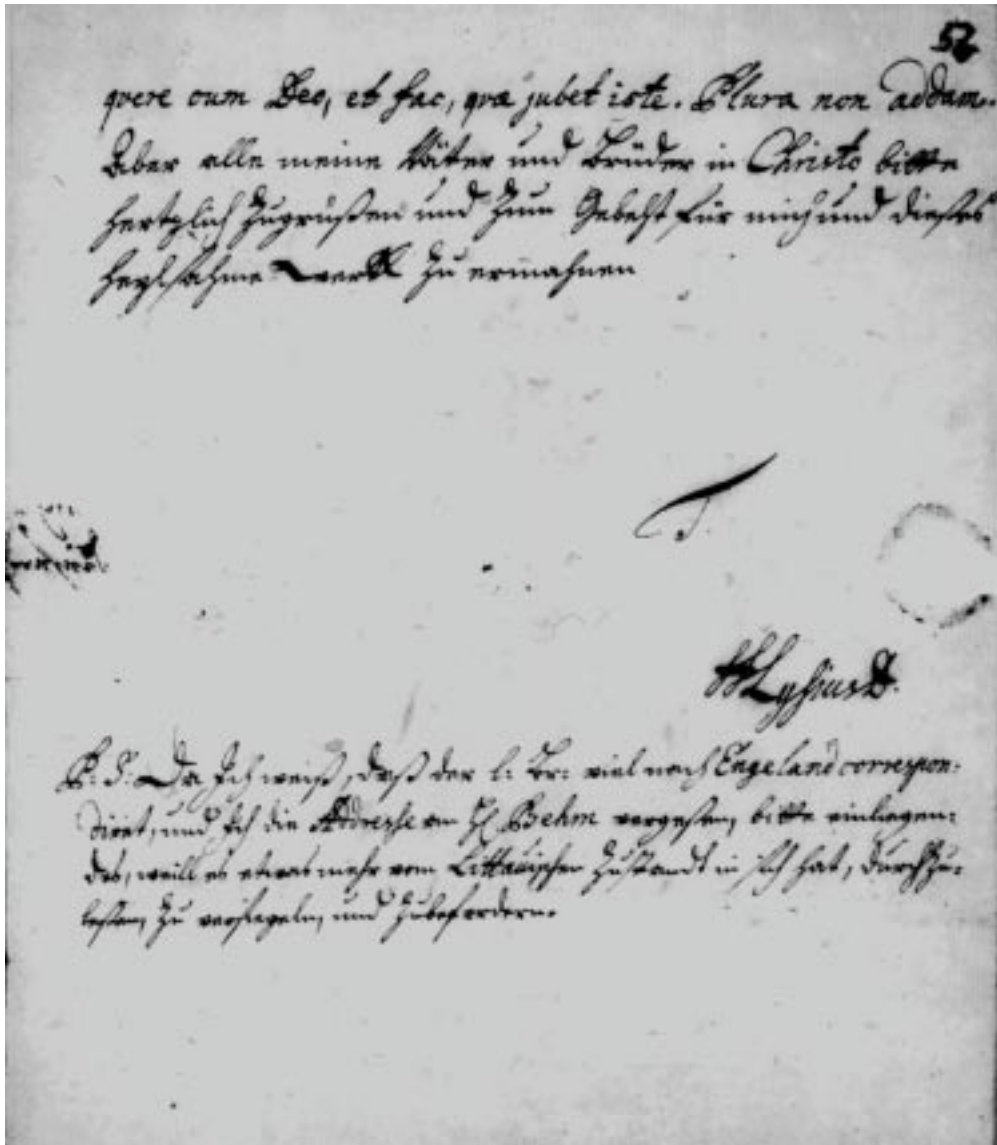 52
qvere cum Deo, et fac, qvæ jubet iste. Plura non addam.
Aber alle meine Väter und Brüder in Christo bitte
hertzlich zugrüßen und zum Gebeht für mich und dieses
heylsahme Werck zu ermahnen
HLysius D.
P. S. Da Ich weiß, daß der l: Br: viel nach Engeland correspon:
diret, und Ich die Addresse an H. Behm vergeßen, bitte einliegen:
des, weill es etwas mehr vom Littauischen Zustandt in sich hat, durchzu:
lesen, zu versiegeln, und zubefordern.